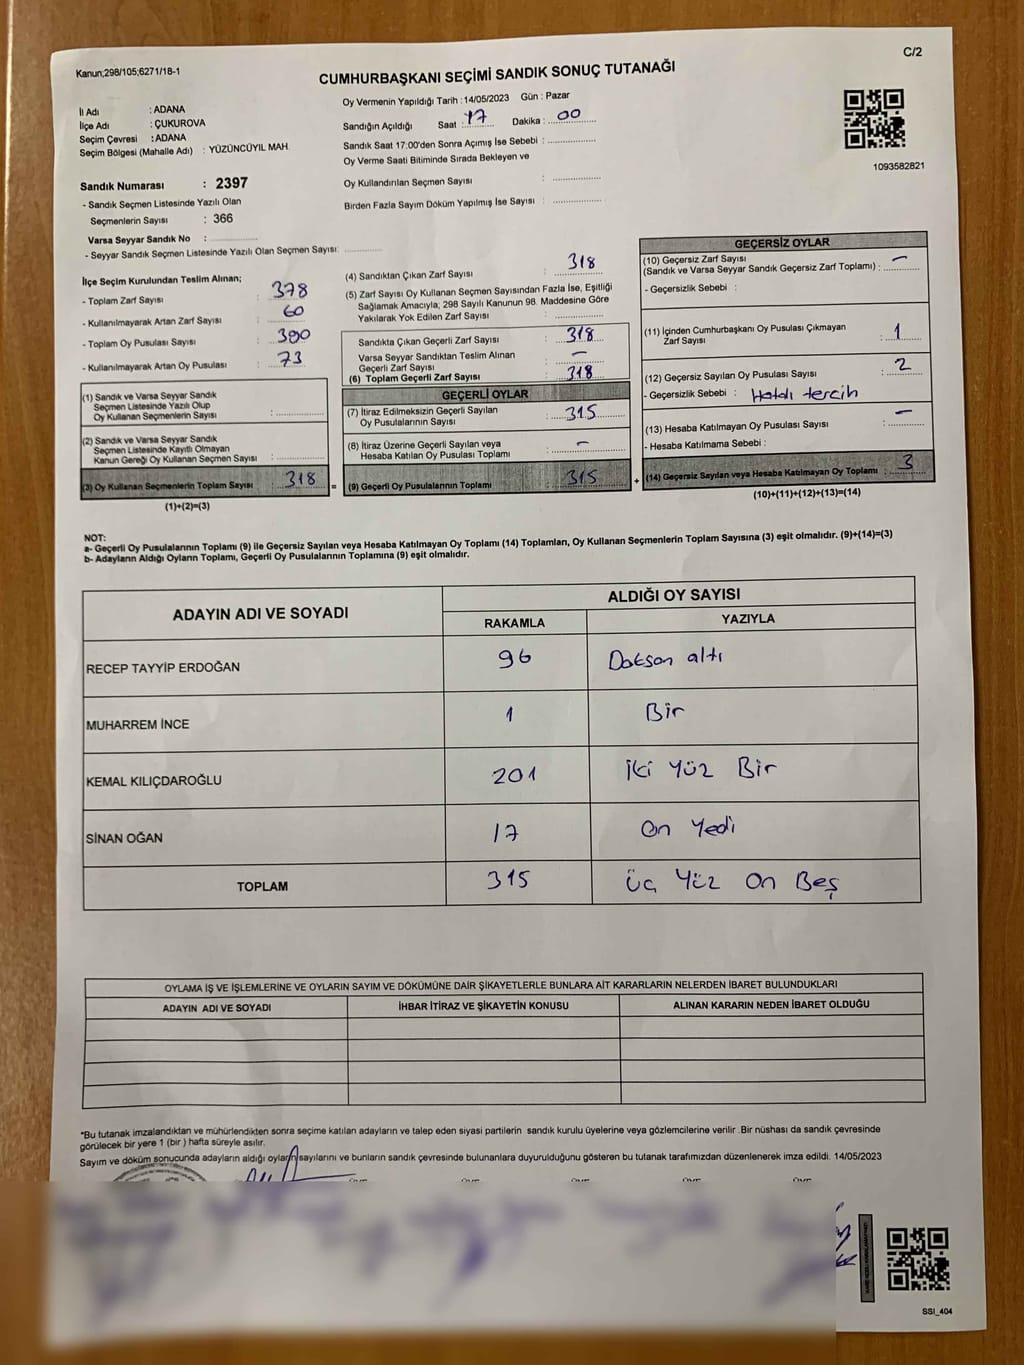 Kanun;298/105;6271/18-1
C/2
CUMHURBAŞKANI SEÇİMİ SANDIK SONUÇ TUTANAĞI
İl Adı : ADANA
İlçe Adı : ÇUKUROVA
Seçim Çevresi : ADANA
Seçim Bölgesi (Mahalle Adı) : YÜZÜNCÜYIL MAH.
Sandık Numarası : 2397
- Sandık Seçmen Listesinde Yazılı Olan
Seçmenlerin Sayısı : 366
Varsa Seyyar Sandık No :
- Seyyar Sandık Seçmen Listesinde Yazılı Olan Seçmen Sayısı:
Oy Vermenin Yapıldığı Tarih : 14/05/2023 Gün : Pazar
Sandığın Açıldığı Saat : 17 Dakika : 00
Sandık Saat 17:00'den Sonra Açımış İse Sebebi :
Oy Verme Saati Bitiminde Sırada Bekleyen ve
Oy Kullandırılan Seçmen Sayısı :
Birden Fazla Sayım Döküm Yapılmış İse Sayısı :
1093582821
İlçe Seçim Kurulundan Teslim Alınan;
- Toplam Zarf Sayısı : 378
- Kullanılmayarak Artan Zarf Sayısı : 60
- Toplam Oy Pusulası Sayısı : 390
- Kullanılmayarak Artan Oy Pusulası : 73
(1) Sandık ve Varsa Seyyar Sandık
Seçmen Listesinde Yazılı Olup
Oy Kullanan Seçmenlerin Sayısı :
(2) Sandık ve Varsa Seyyar Sandık
Seçmen Listesinde Kayıtlı Olmayan
Kanun Gereği Oy Kullanan Seçmen Sayısı :
(3) Oy Kullanan Seçmenlerin Toplam Sayısı : 318
(1)+(2)=(3)
=
(4) Sandıktan Çıkan Zarf Sayısı : 318
(5) Zarf Sayısı Oy Kullanan Seçmen Sayısından Fazla İse, Eşitliği
Sağlamak Amacıyla; 298 Sayılı Kanunun 98. Maddesine Göre
Yakılarak Yok Edilen Zarf Sayısı :
Sandıkta Çıkan Geçerli Zarf Sayısı : 318
Varsa Seyyar Sandıktan Teslim Alınan
Geçerli Zarf Sayısı : –
(6) Toplam Geçerli Zarf Sayısı : 318
GEÇERLİ OYLAR
(7) İtiraz Edilmeksizin Geçerli Sayılan
Oy Pusulalarının Sayısı : 315
(8) İtiraz Üzerine Geçerli Sayılan veya
Hesaba Katılan Oy Pusulası Toplamı : –
(9) Geçerli Oy Pusulalarının Toplamı : 315
+
GEÇERSİZ OYLAR
(10) Geçersiz Zarf Sayısı
(Sandık ve Varsa Seyyar Sandık Geçersiz Zarf Toplamı) : –
- Geçersizlik Sebebi :
(11) İçinden Cumhurbaşkanı Oy Pusulası Çıkmayan
Zarf Sayısı : 1
(12) Geçersiz Sayılan Oy Pusulası Sayısı : 2
- Geçersizlik Sebebi : Hatalı tercih
(13) Hesaba Katılmayan Oy Pusulası Sayısı : –
- Hesaba Katılmama Sebebi :
(14) Geçersiz Sayılan veya Hesaba Katılmayan Oy Toplamı : 3
(10)+(11)+(12)+(13)=(14)
NOT:
a- Geçerli Oy Pusulalarının Toplamı (9) ile Geçersiz Sayılan veya Hesaba Katılmayan Oy Toplamı (14) Toplamları, Oy Kullanan Seçmenlerin Toplam Sayısına (3) eşit olmalıdır. (9)+(14)=(3)
b- Adayların Aldığı Oyların Toplamı, Geçerli Oy Pusulalarının Toplamına (9) eşit olmalıdır.
ADAYIN ADI VE SOYADI ALDIĞI OY SAYISI
RAKAMLA YAZIYLA
RECEP TAYYİP ERDOĞAN 96 Doksan altı
MUHARREM İNCE 1 Bir
KEMAL KILIÇDAROĞLU 201 İki Yüz Bir
SİNAN OĞAN 17 On Yedi
TOPLAM 315 Üç Yüz On Beş
OYLAMA İŞ VE İŞLEMLERİNE VE OYLARIN SAYIM VE DÖKÜMÜNE DAİR ŞİKAYETLERLE BUNLARA AİT KARARLARIN NELERDEN İBARET BULUNDUKLARI
ADAYIN ADI VE SOYADI İHBAR İTİRAZ VE ŞİKAYETİN KONUSU ALINAN KARARIN NEDEN İBARET OLDUĞU
*Bu tutanak imzalandıktan ve mühürlendikten sonra seçime katılan adayların ve talep eden siyasi partilerin sandık kurulu üyelerine veya gözlemcilerine verilir. Bir nüshası da sandık çevresinde
görülecek bir yere 1 (bir ) hafta süreyle asılır.
Sayım ve döküm sonucunda adayların aldığı oyların sayılarını ve bunların sandık çevresinde bulunanlara duyurulduğunu gösteren bu tutanak tarafımızdan düzenlenerek imza edildi. 14/05/2023
SSI_404